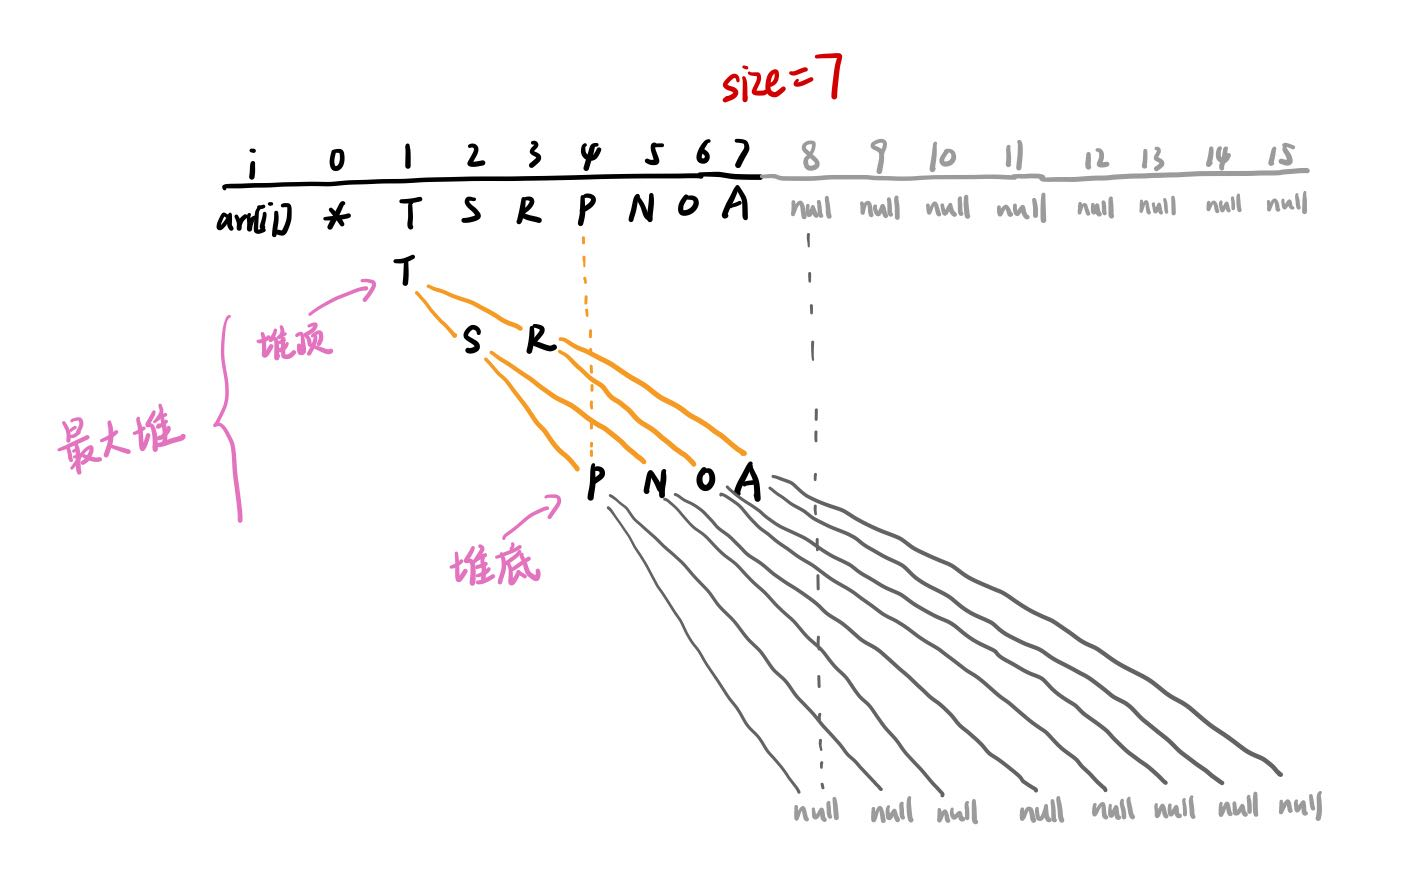 size=7
i 0 1 2 3 4 5 6 7 8 9 10 11 12 13 14 15
arr[i] * T S R P N O A null null null null null null null null
T
堆顶
S R
最大堆
P N O A
堆底
null null null null null null null null